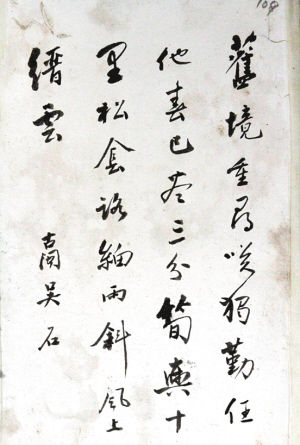 舊境重尋咲獨勤任
他春已三分筍輿十
里松路細雨斜風上
縉雲
古閩吳石